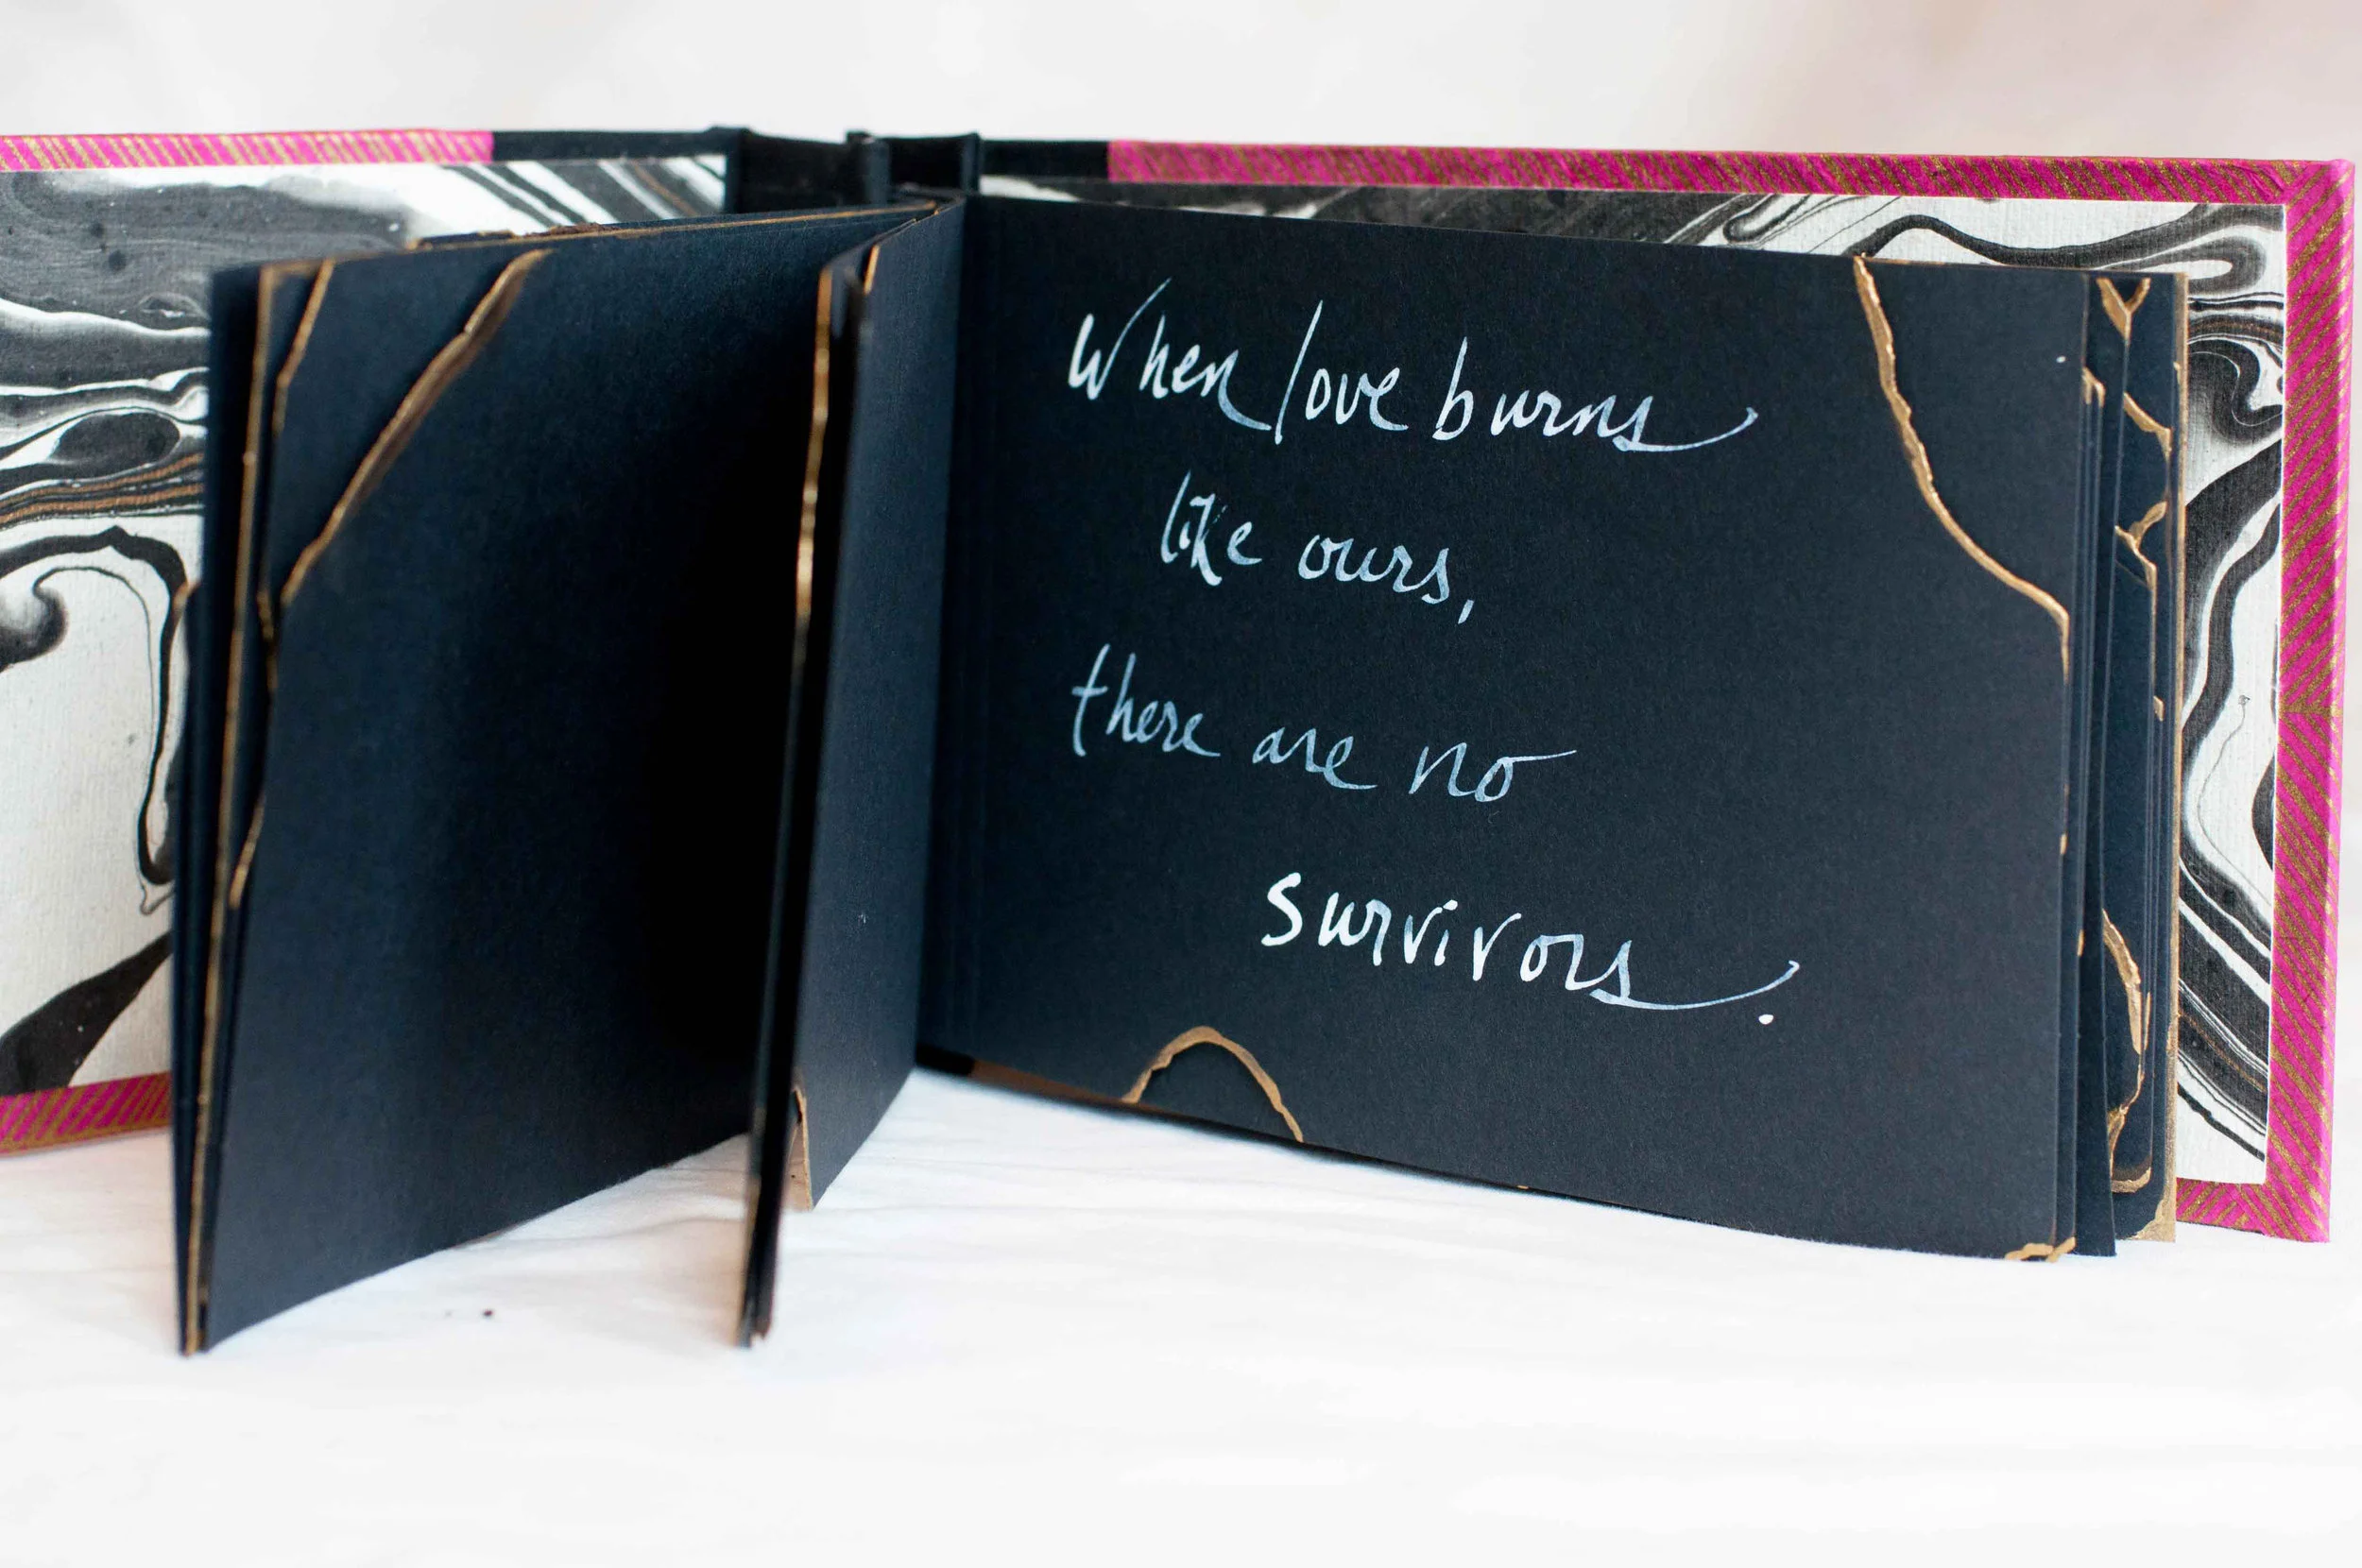 When love burns
like ours,
there are no
survivors.